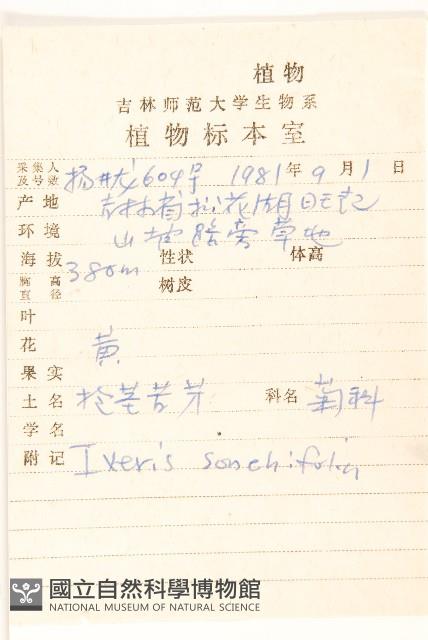 植物
吉林师范大学生物系
植物标本室
采集人及号数 杨世龙604号 1981年9月1日
产地 吉林省松花湖
环境 山坡路旁草地
海拔 380m 性状 体高
胸高直径 树皮
叶
花 黄
果实
土名 抱茎苦芽 科名 菊科
学名
附记 Ixeris sonchifolia
國立自然科學博物館
NATIONAL MUSEUM OF NATURAL SCIENCE